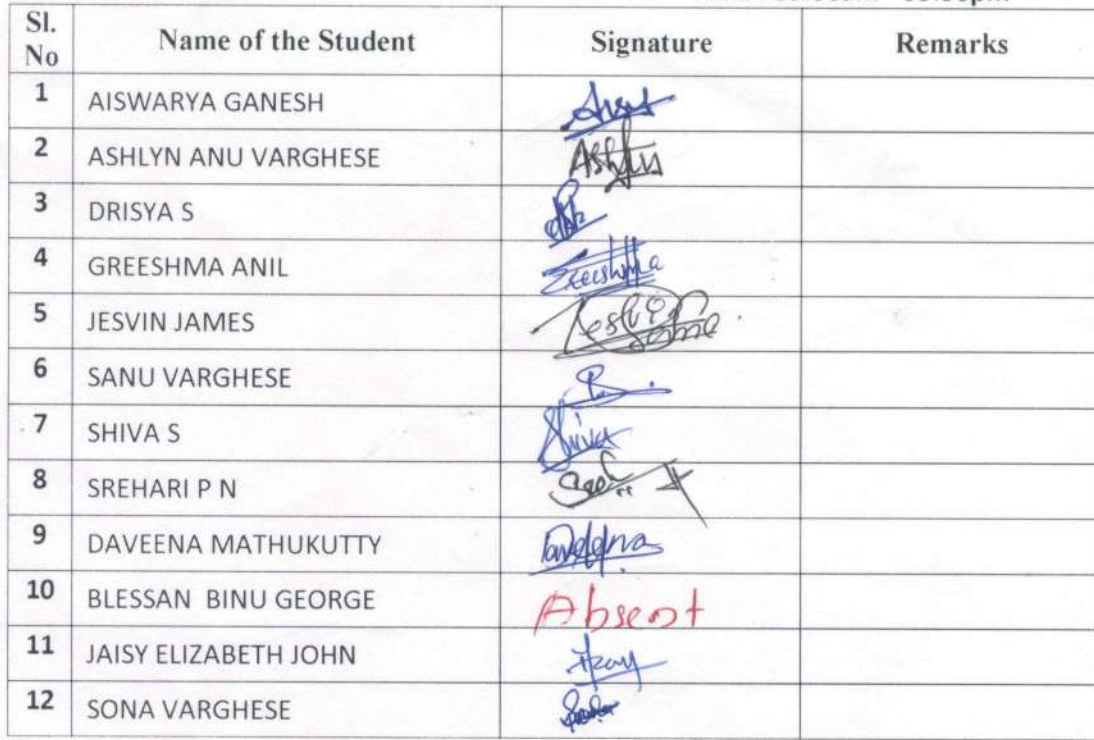 Sl. No Name of the Student Signature Remarks
1 AISWARYA GANESH
2 ASHLYN ANU VARGHESE Ashlyn
3 DRISYA S
4 GREESHMA ANIL Greeshma
5 JESVIN JAMES Jesvin
6 SANU VARGHESE
7 SHIVA S Shiva
8 SREHARI P N
9 DAVEENA MATHUKUTTY Daveena
10 BLESSAN BINU GEORGE Absent
11 JAISY ELIZABETH JOHN
12 SONA VARGHESE